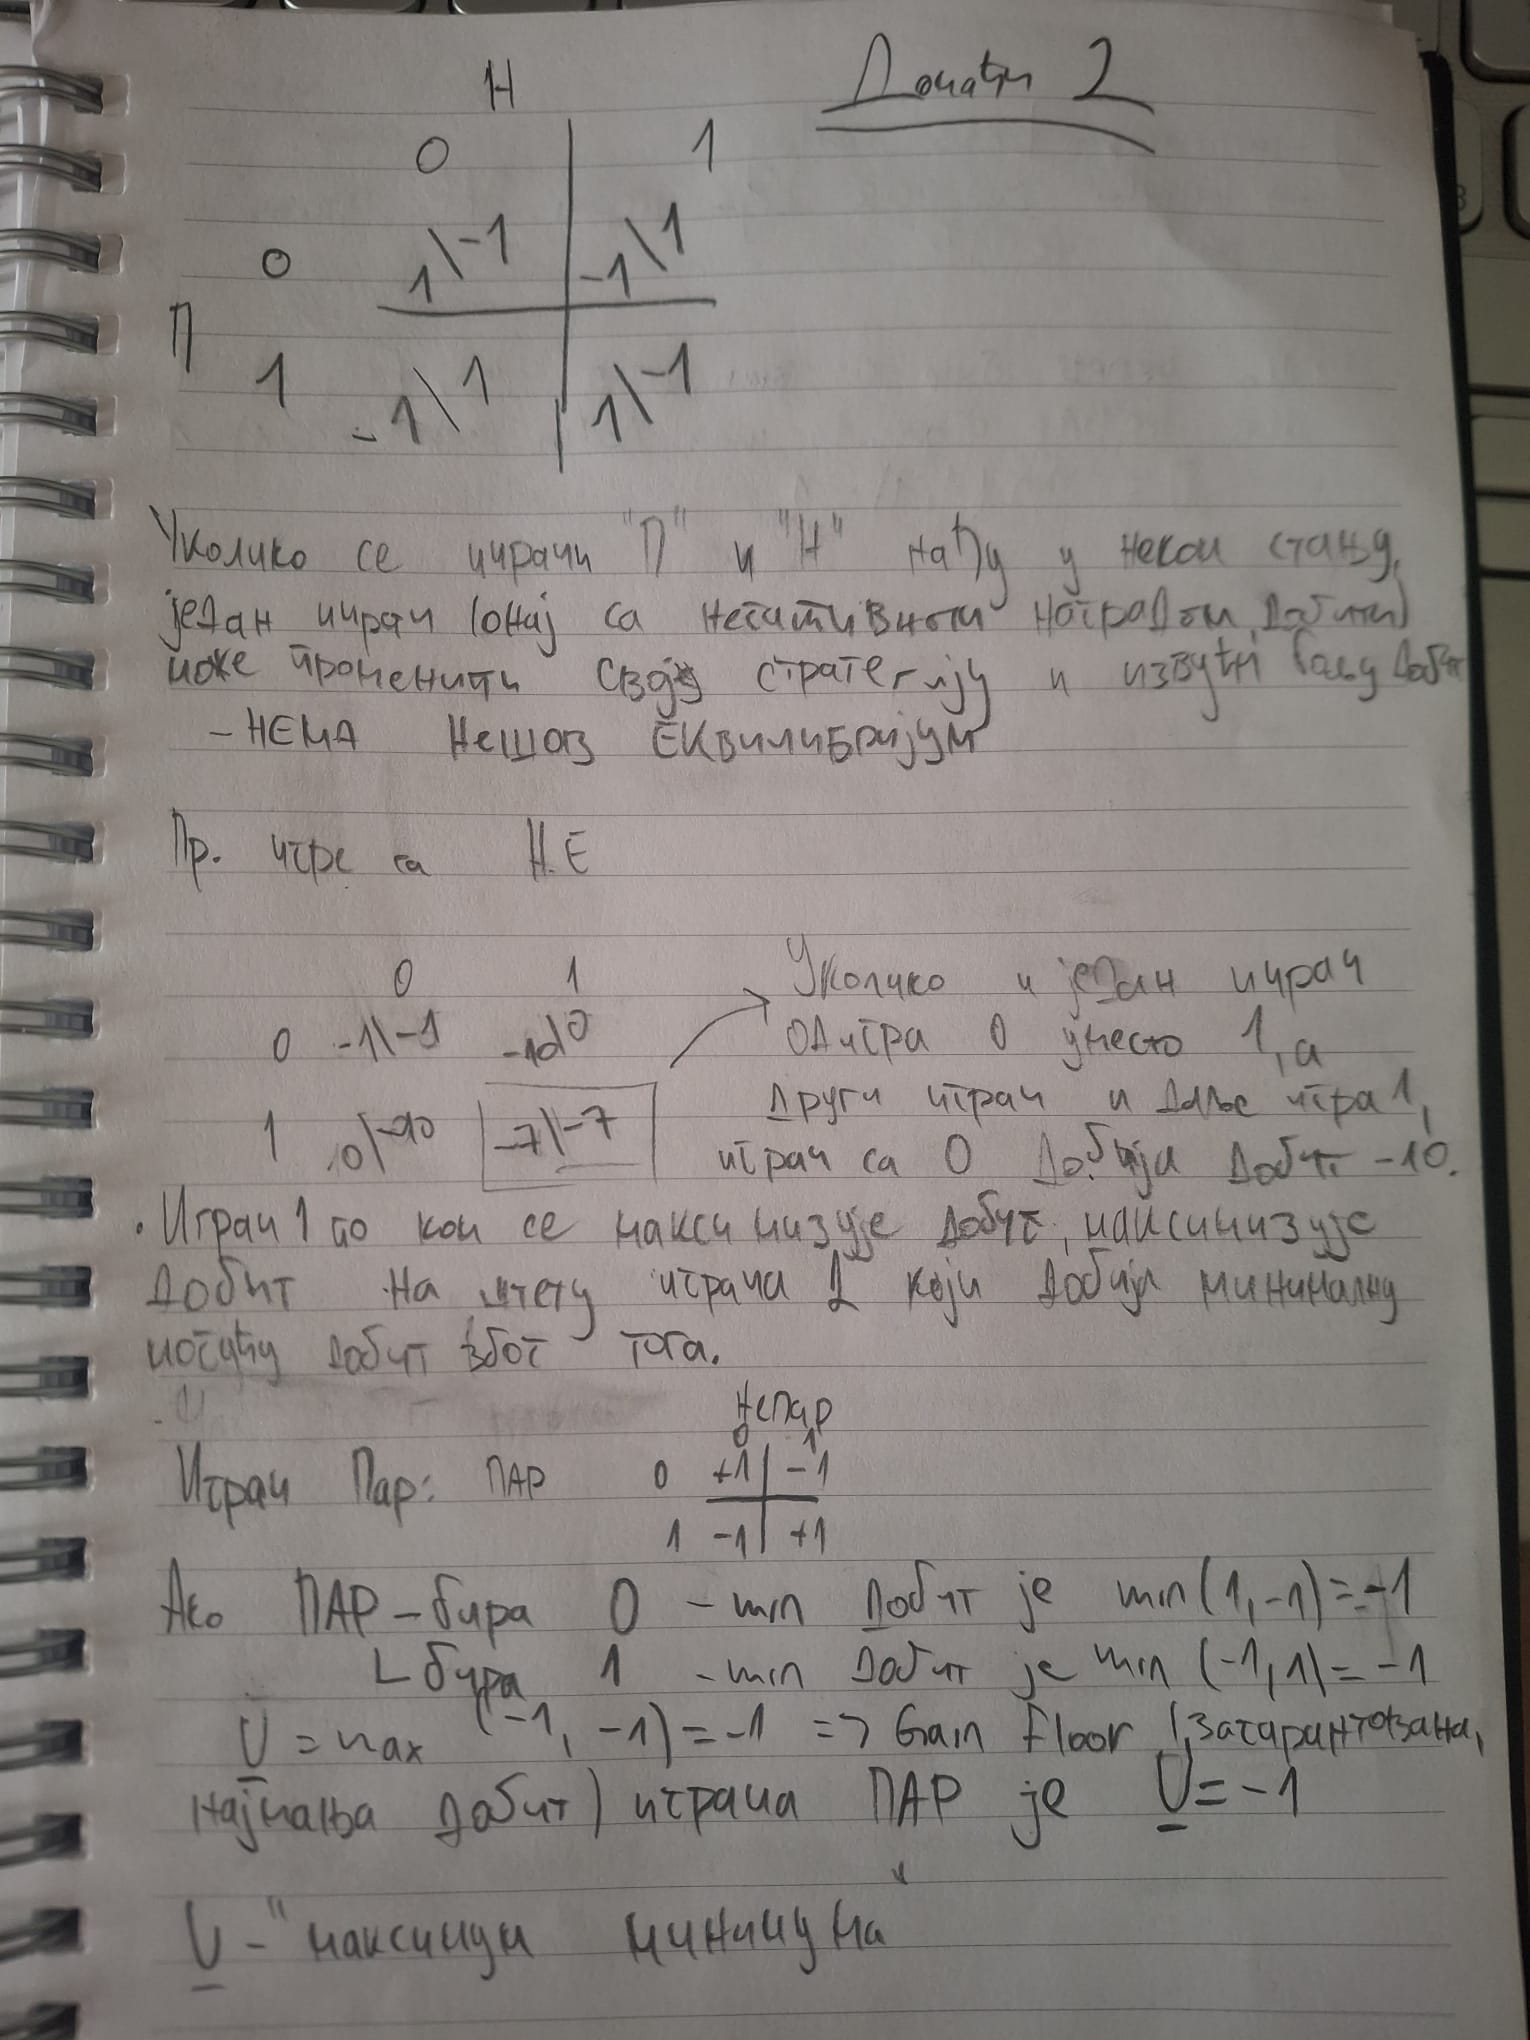 Домаћи 2
Н
0 1
0 1\-1 -1\1
П
1 -1\1 1\-1
Уколико се играчи "П" и "Н" нађу у неком стању,
један играч (онај са негативном наградом, добити)
може променити своју стратегију и извући бољу добит
- НЕМА Нешов ЕКВИЛИБРИЈУМ
Пр. игре са Н.Е
0 1
0 -1\-1 -10\0
1 0\-10 -7\-7
Уколико и један играч
одигра 0 уместо 1, а
други играч и даље игра 1,
играч са 0 добија добит -10.
• Играч 1 по ком се максимизује добит, максимизује
добит на штету играча 2 који добија минималну
могућу добит због тога.
Непар
0 1
Играч Пар: ПАР 0 +1 | -1
1 -1 | +1
Ако ПАР - бира 0 - min добит је min(1,-1)=-1
∟ бира 1 - min добит је min (-1,1)=-1
U = max (-1, -1)=-1 => Gain Floor (загарантована,
најмања добит) играча ПАР је U=-1
U - "максимум минимума"